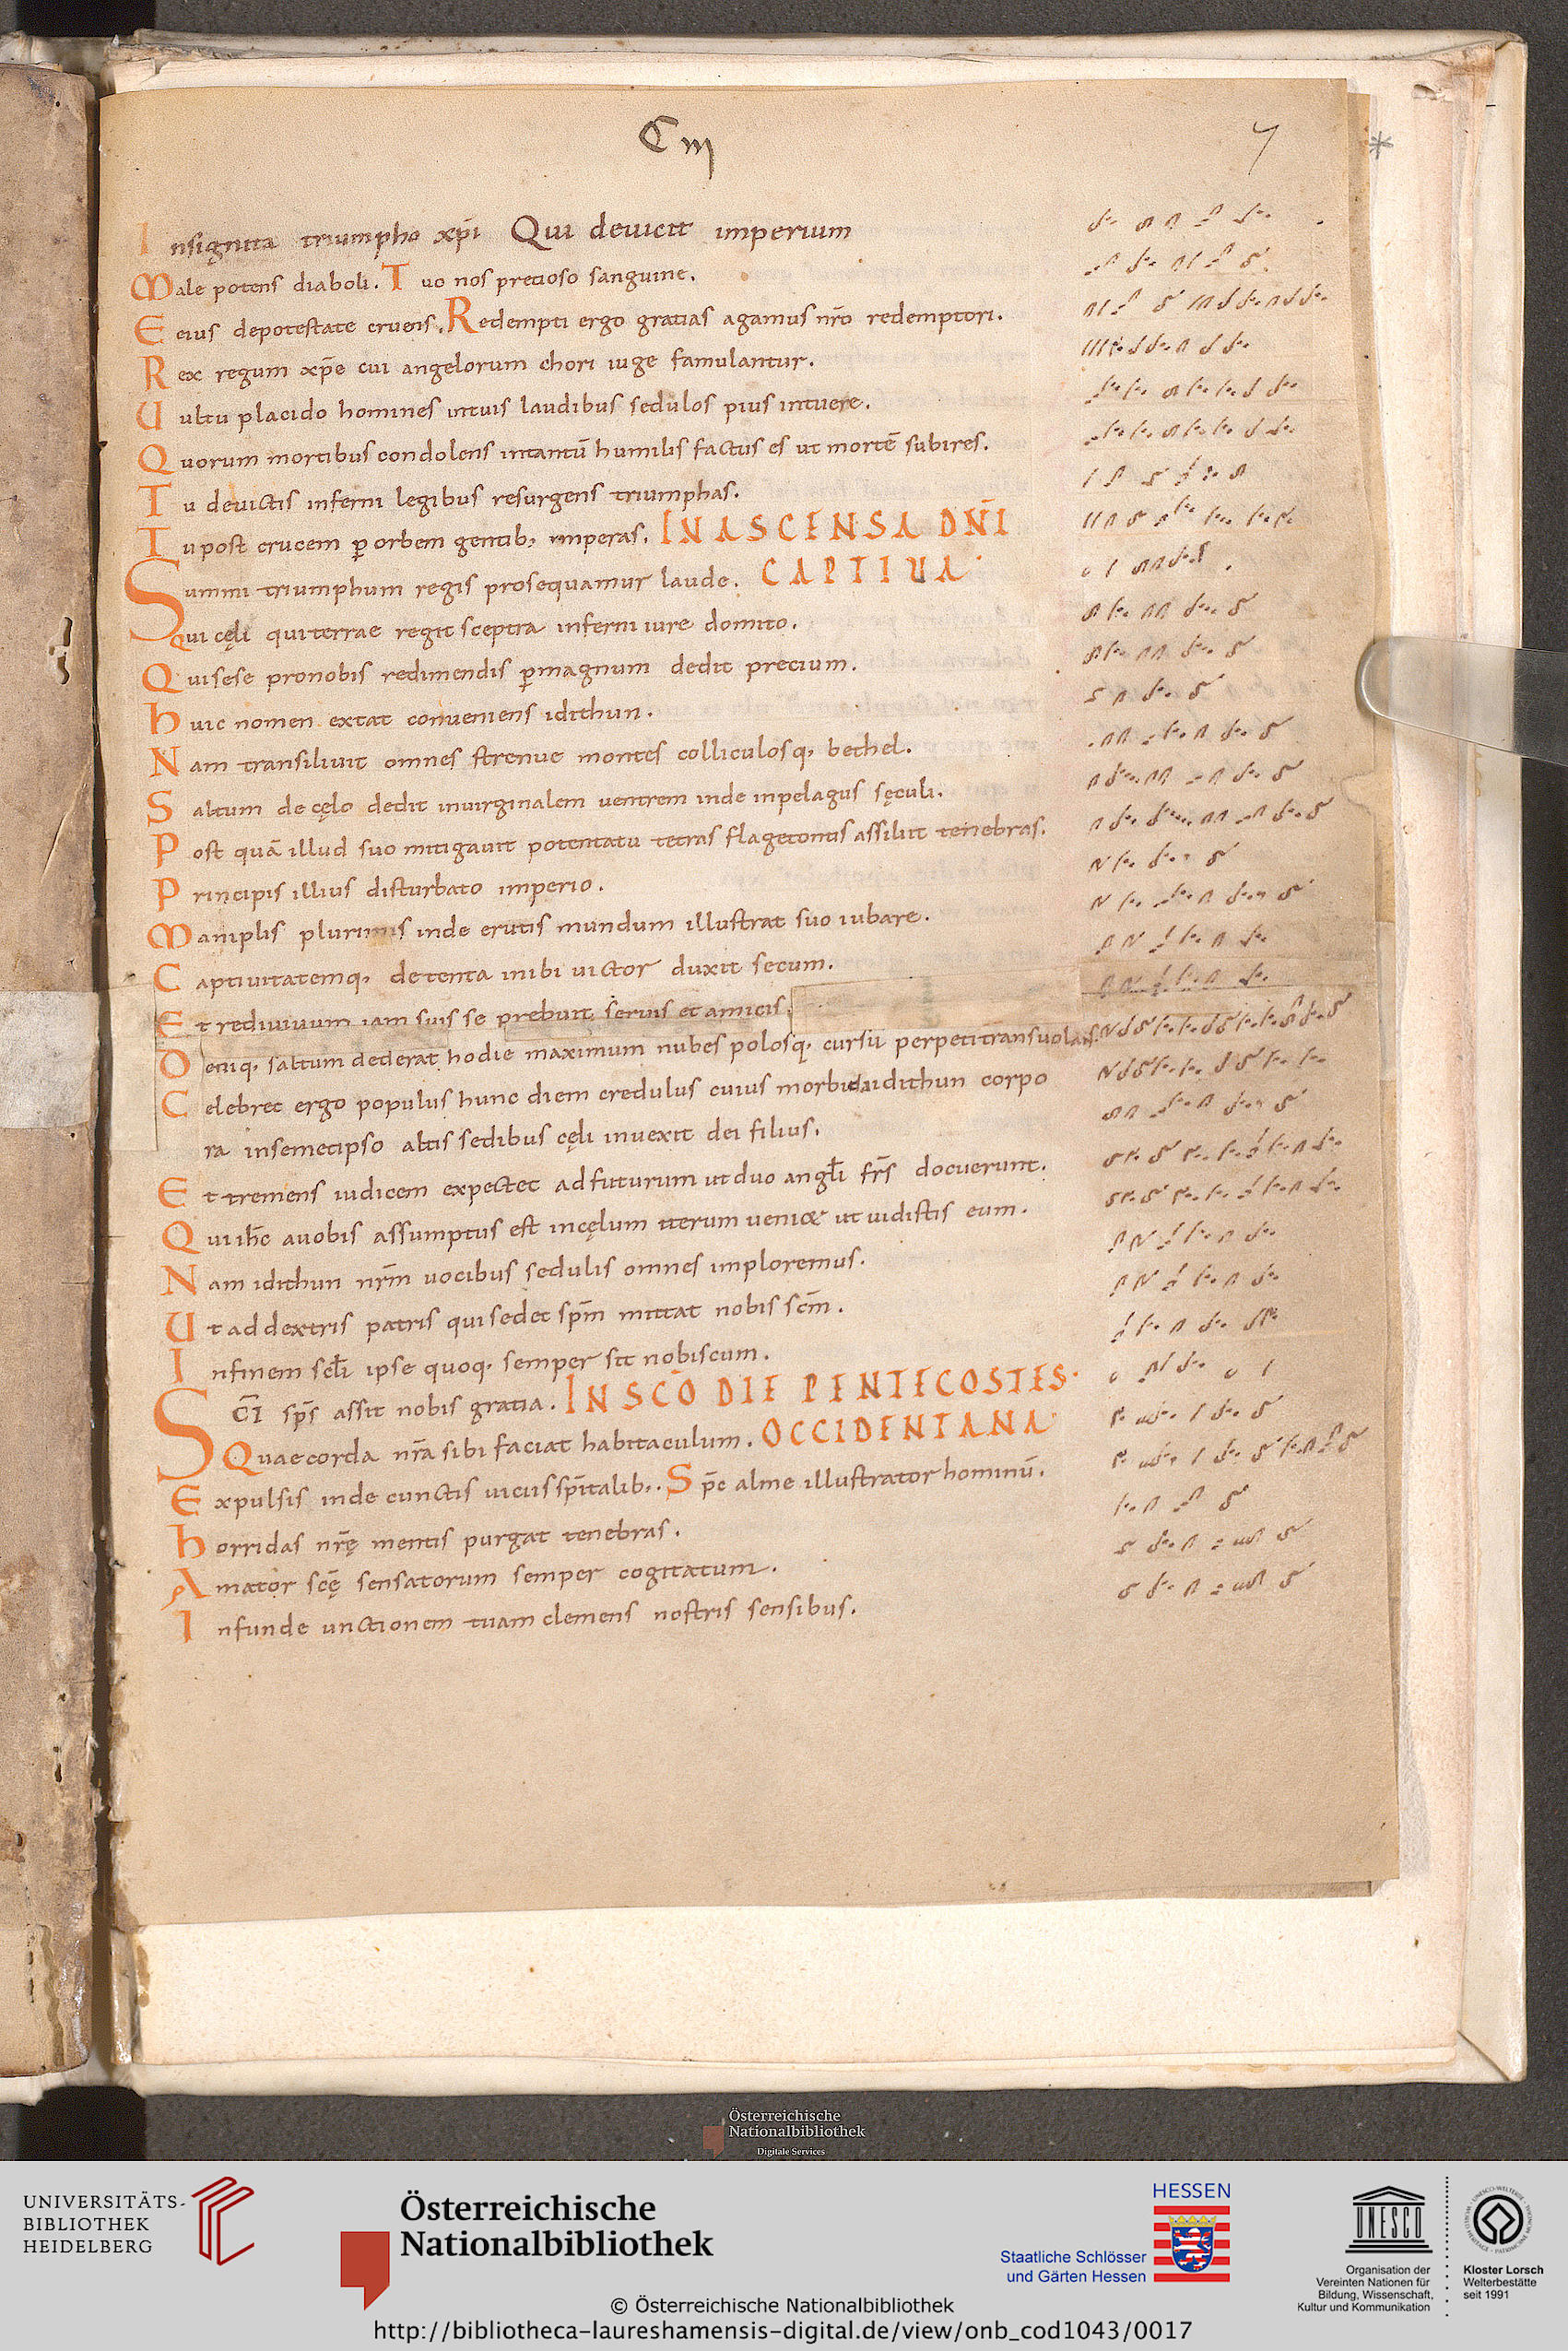 C III
7
*
Insignita triumpho xp̄i Qui deuicit imperium
Male potens diaboli. Tuo nos precioso sanguine.
Eeius depotestate cruens. Redempti ergo gratias agamus nr̄o redemptori.
Rex regum xp̄e cui angelorum chori iuge famulantur.
Uultu placido homines intuis laudibus sedulos pius intuere.
Quorum mortibus condolens intantū humilis factus es ut mortē subires.
Tu deuictis inferni legibus resurgens triumphas.
Tu post crucem ꝑ orbem gentib; imperas. IN ASCENSA DN̄I
Summi triumphum regis prosequamur laude. CAPTIUA
Qui cęli quiterrae regit sceptra inferni iure domito.
Quisese pronobis redimendis ꝑmagnum dedit precium.
huic nomen extat conueniens idithun.
Nam transiliuit omnes strenue montes colliculosq; bethel.
Saltum de cęlo dedit inuirginalem uentrem inde inpelagus sęculi.
Post quā illud suo mitigauit potentatu tetras flagetontis assiliit tenebras.
Principis illius disturbato imperio.
Maniplis plurimis inde erutis mundum illustrat suo iubare.
Captiuitatemq; detenta inibi uictor duxit secum.
Et rediuiuum iam suis se prebuit seruis et amicis.
Deniq; saltum dederat hodie maximum nubes polosq; cursu perpeti transuolans.
Celebret ergo populus hunc diem credulus cuius morbida idithun corpo
ra insemetipso altis sedibus cęli inuexit dei filius.
Et tremens iudicem expectet adfuturum ut duo angl̄i fr̄s docuerunt.
Qui ih̄c auobis assumptus est incęlum iterum ueni& ut uidistis eum.
Nam idithun nr̄m uocibus sedulis omnes imploremus.
Ut ad dextris patris qui sedet sp̄m mittat nobis sc̄m.
Infinem scl̄i ipse quoq; semper sit nobiscum.
SC̄I sp̄s assit nobis gratia. IN SC̄O DIE PENTECOSTES.
Quae corda nr̄a sibi faciat habitaculum. OCCIDENTANA
Expulsis inde cunctis uiciis sp̄italib;. Sp̄c alme illustrator hominū.
horridas nr̄ę mentis purgat tenebras.
Amator sc̄ę sensatorum semper cogitatum.
Infunde unctionem tuam clemens nostris sensibus.
Österreichische
Nationalbibliothek
Digitale Services
UNIVERSITÄTS-
BIBLIOTHEK
HEIDELBERG
Österreichische
Nationalbibliothek
HESSEN
Staatliche Schlösser
und Gärten Hessen
UNESCO
Organisation der
Vereinten Nationen für
Bildung, Wissenschaft,
Kultur und Kommunikation
Kloster Lorsch
Welterbestätte
seit 1991
© Österreichische Nationalbibliothek
http://bibliotheca-laureshamensis-digital.de/view/onb_cod1043/0017